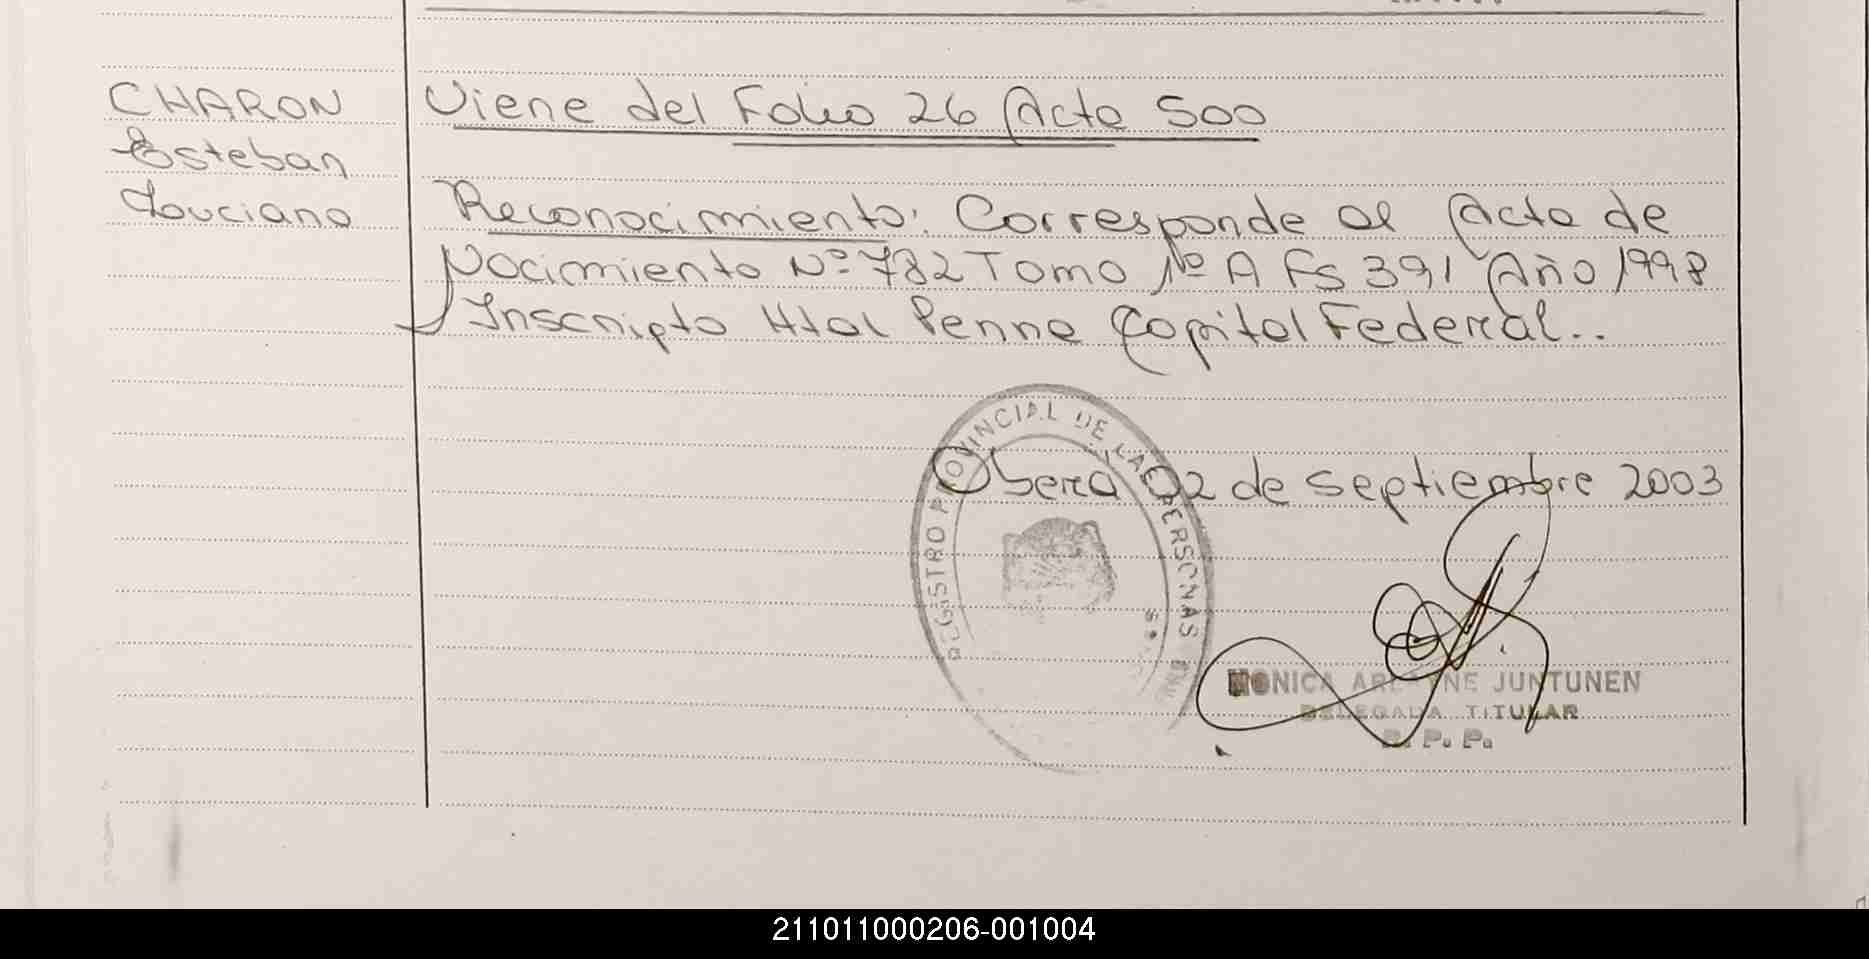 CHARON
Esteban
Louciano
Viene del Folio 26 Acta 500
Reconocimiento: Corresponde al Acta de
Nacimiento Nº 782 Tomo Nº A Fs 391 Año 1998
Inscripto Htal Penna Capital Federal..
REGISTRO PROVINCIAL DE LAS PERSONAS
Obera 02 de Septiembre 2003
MONICA ARLAYNE JUNTUNEN
DELEGADA TITULAR
R. P. P.
211011000206-001004